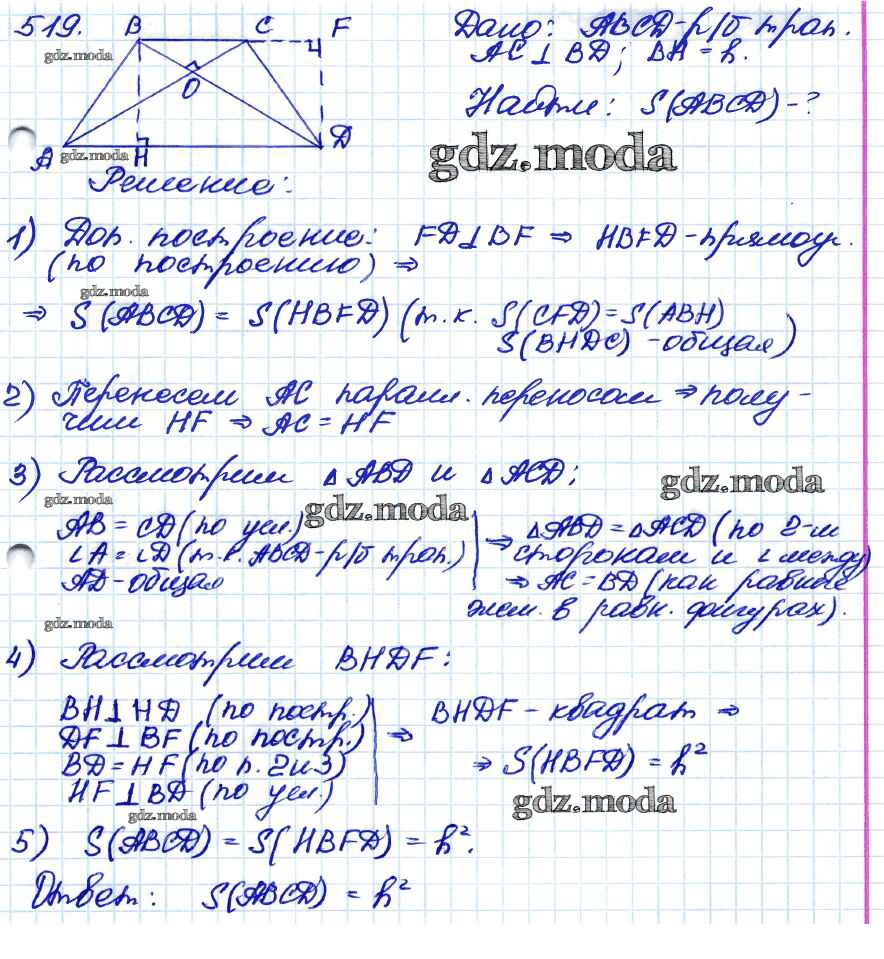 519. B C F
gdz.moda
O
A gdz.moda H D
Дано: ABCD-р/б трап.
AC⊥BD; BH=h.
Найти: S(ABCD)-?
gdz.moda
Решение:
1) Доп. построение: FD⊥BF ⇒ HBFD-прямоуг.
(по построению) ⇒
gdz.moda
⇒ S(ABCD) = S(HBFD) (т.к. S(CFD)=S(ABH)
S(BHDC) -общая)
2) Перенесем AC паралл. переносом ⇒ полу-
чим HF ⇒ AC = HF
3) Рассмотрим △ABD и △ACD;
gdz.moda gdz.moda gdz.moda
AB = CD (по усл.)
∠A = ∠D (т.к. ABCD-р/б трап.)
AD-общая
⇒ △ABD = △ACD (по 2-м
сторонам и ∠ между)
⇒ AC = BD (как равные
элем. в равн. фигурах).
gdz.moda
4) Рассмотрим BHDF:
BH⊥HD (по постр.)
DF⊥BF (по постр.)
BD=HF (по п. 2и3)
HF⊥BD (по усл.)
⇒ BHDF - квадрат ⇒
⇒ S(HBFD) = h²
gdz.moda
gdz.moda
5) S(ABCD) = S(HBFD) = h².
Ответ: S(ABCD) = h²